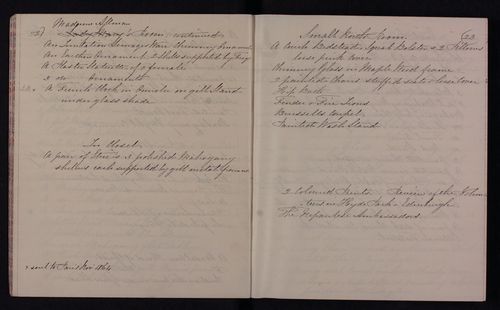 Madame Alleman
Lady Mary's Room continued
An Imitation Limoges Ware Chimney Ornament
An Earthen Ornament 2 Shells supported by
A Plaster Statuette of a female
2 Ornaments
A French Clock in Ormolu on gilt Stand
under glass shade
In Closet
A pair of Polished Mahogany
shelves each supported by gilt metal
sent to Nov 1864
Small South Room
(23
A Couch Bedstead Squab Bolster & 2 Pillows
lace pink cover
Chimney Glass in Maple Wood frame
2 painted Chairs stuff'd seats & lace cover
Hip Bath
Fender & Fire Irons
Brussells Carpet
Painted Wash Stand
2 Coloured Prints Review of the Volun
teers in Hyde Park & Edinburgh
The Japanese Ambassadors